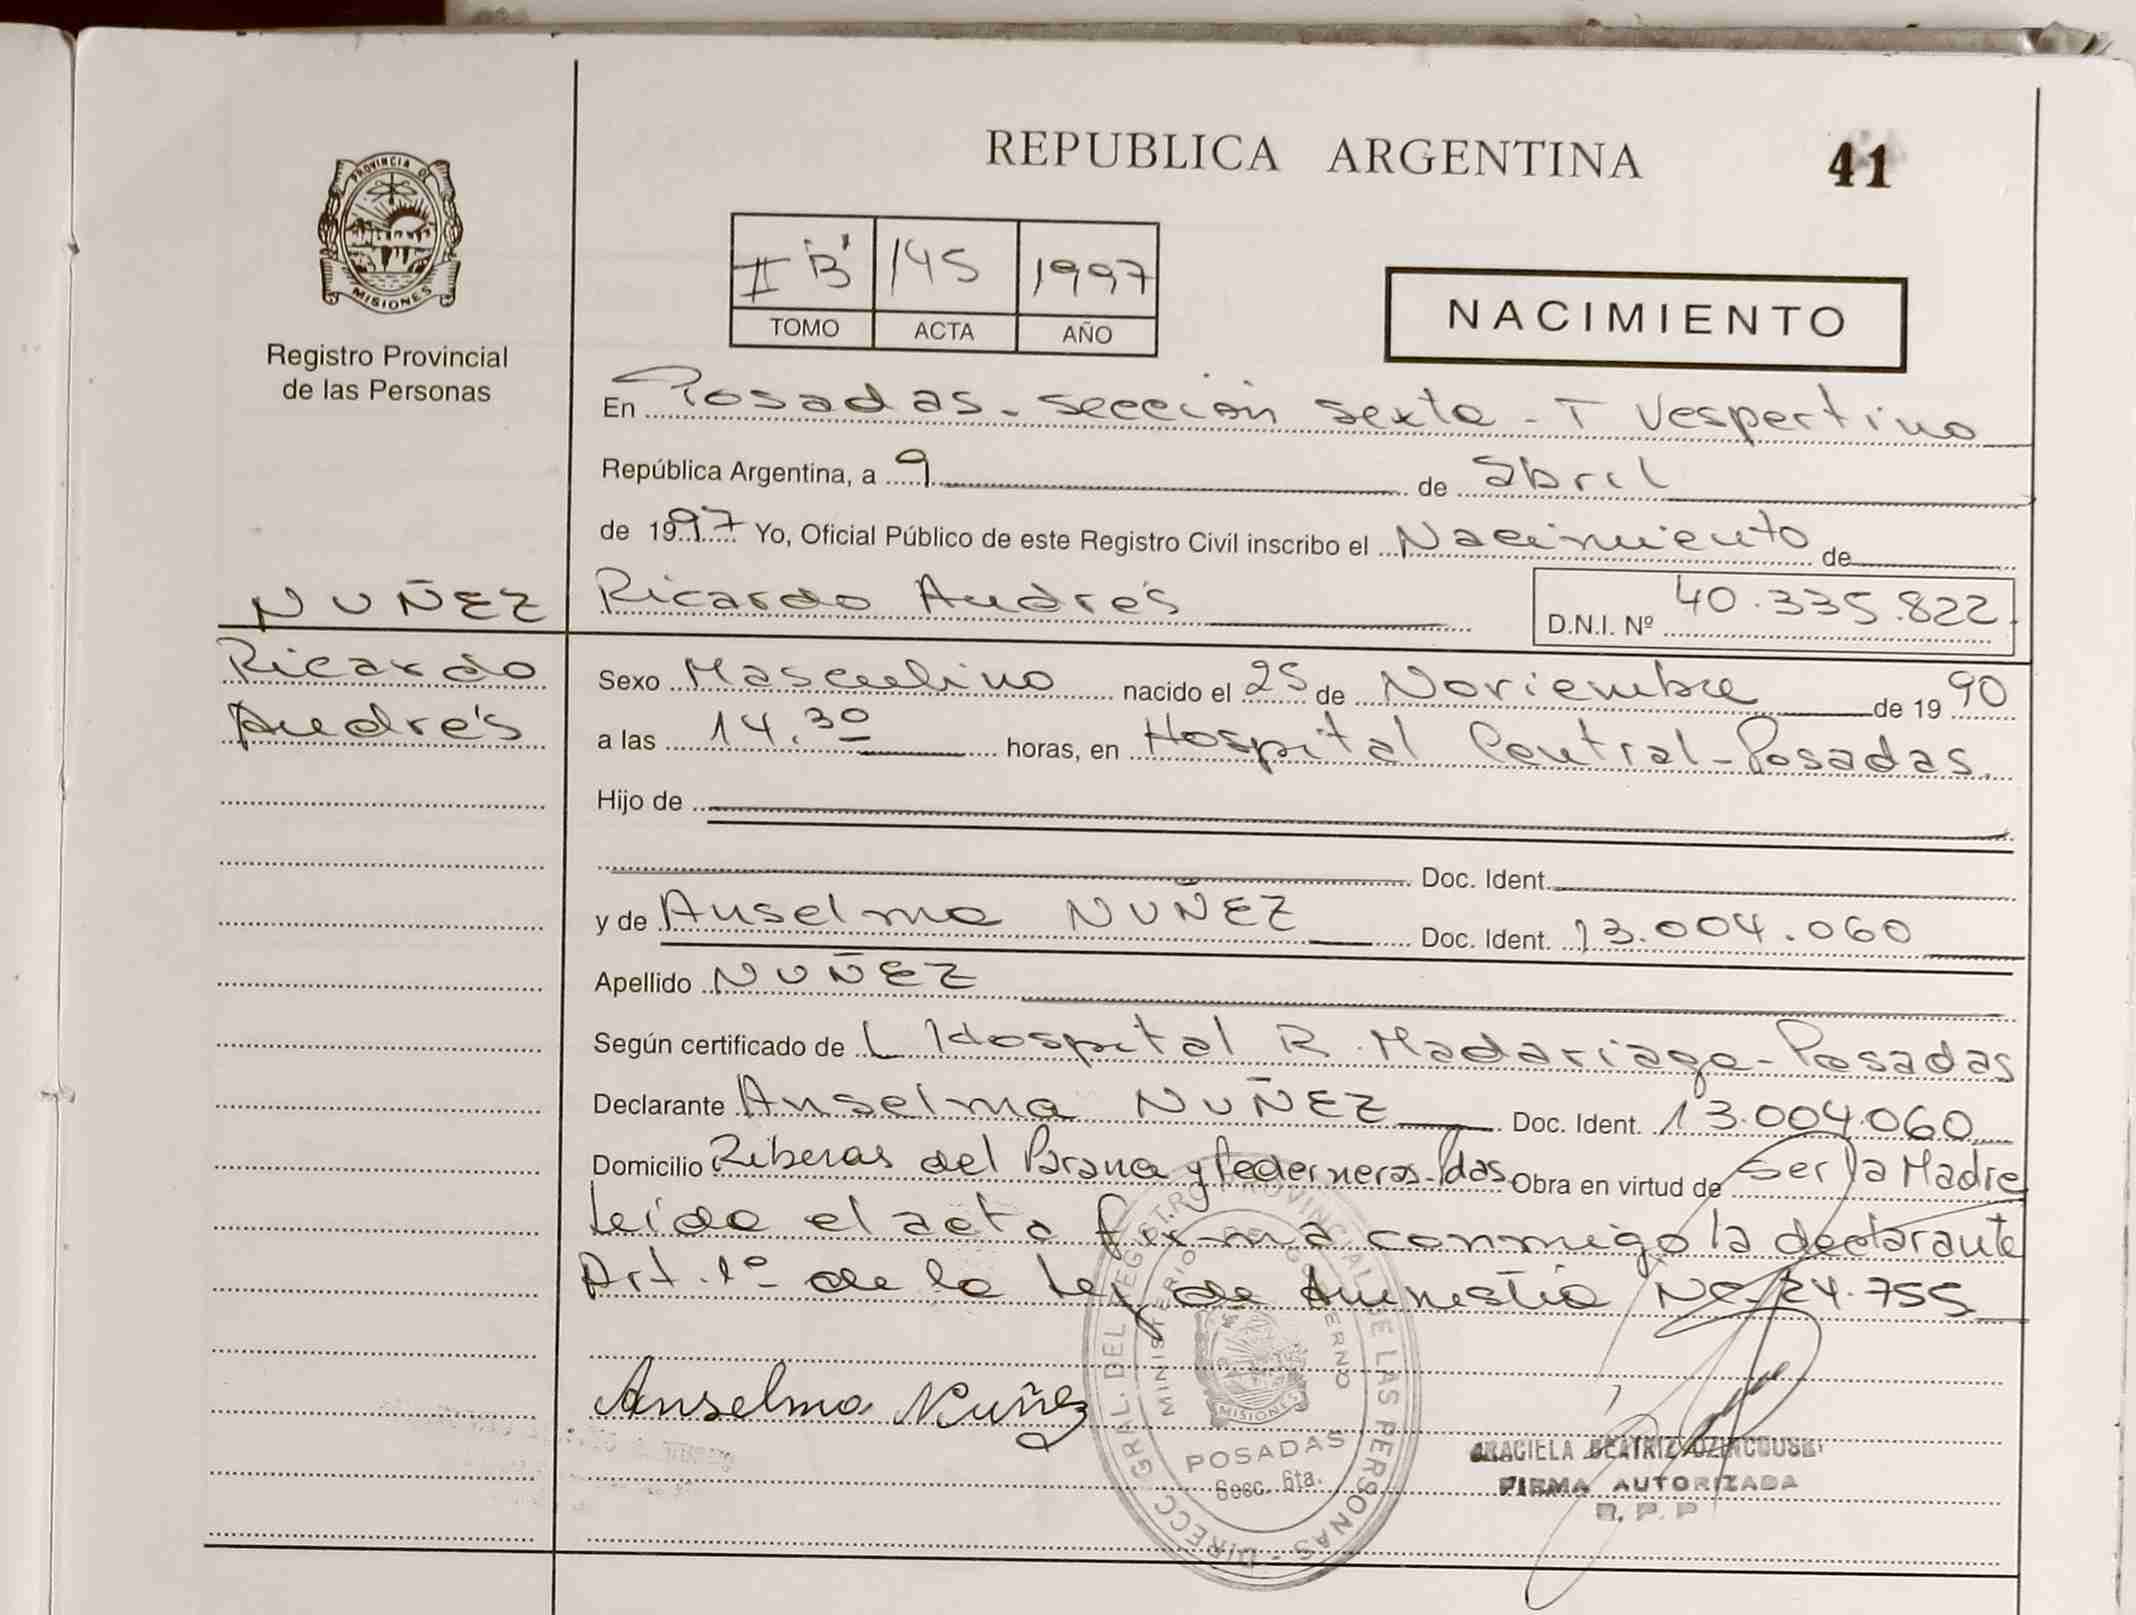 REPUBLICA ARGENTINA
41
PROVINCIA DE
MISIONES
Registro Provincial
de las Personas
II "B" 145 1997
TOMO ACTA AÑO
NACIMIENTO
En Posadas - sección sexta - T Vespertino
República Argentina, a 9 de abril
de 1997 Yo, Oficial Público de este Registro Civil inscribo el Nacimiento de
NUÑEZ
Ricardo
Andrés
Ricardo Andrés D.N.I. Nº 40.335.822
Sexo Masculino nacido el 25 de Noviembre de 1990
a las 14.30 horas, en Hospital Central - Posadas.
Hijo de
Doc. Ident.
y de Anselma NUÑEZ Doc. Ident. 13.004.060
Apellido NUÑEZ
Según certificado del Hospital R. Madariaga - Posadas
Declarante Anselma NUÑEZ Doc. Ident. 13.004.060
Domicilio Riberas del Parana y Pederneras - Pdas Obra en virtud de Ser la Madre
Leída el acta firma conmigo la declarante
Art. 1º de la Ley de Amnistía Nº 24.755
Anselma Nuñez
DIRECC. GRAL. DEL REGISTRO PROVINCIAL DE LAS PERSONAS
MINISTERIO DE GOBIERNO
MISIONES
POSADAS
Secc. 6ta.
GRACIELA BEATRIZ
FIRMA AUTORIZADA
R. P. P